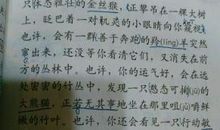 只体态雅壮的金丝猴,正攀吊在一棵大树
上,眨巴着一对机灵的小眼睛向你窥视。
也许,会有一群善于奔跑的羚(líng)羊突然
窜出来,还没等你看清它们,又消失在前
方的丛林中。也许,你的运气好,会在远
处密密的竹丛中,发现一只憨态可掬的
大熊猫,正若无其事地坐在那里咀 嚼鲜
嫩的竹叶。也许,你还会看见一只行动敏